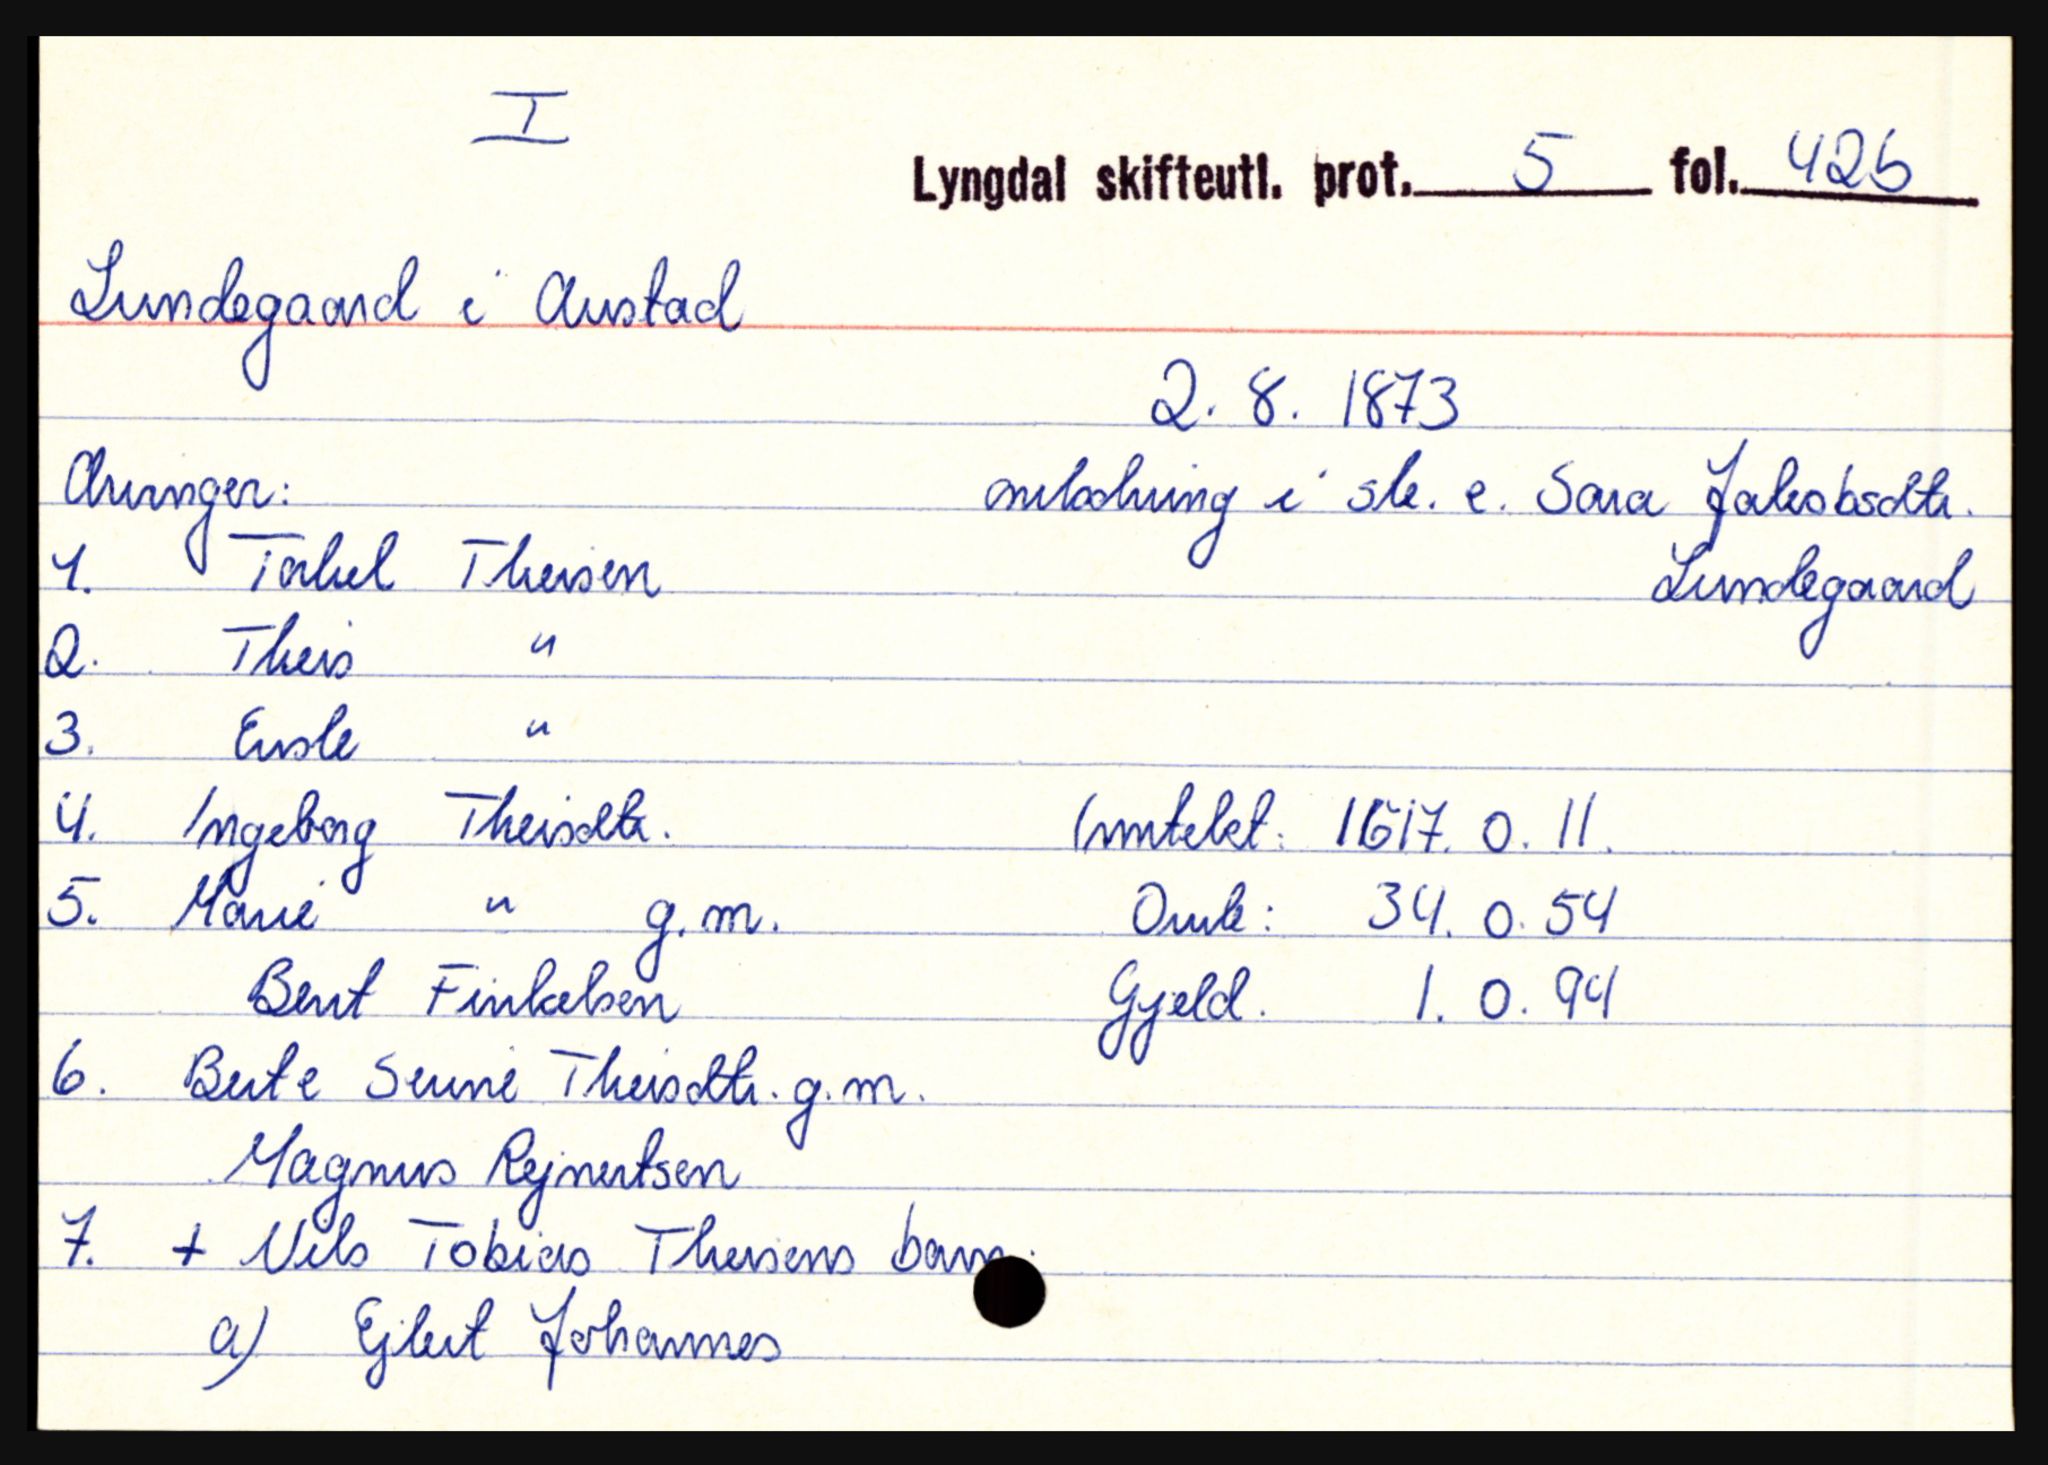 I
Lyngdal skifteutl. prot. 5 fol. 426
Lundegaard i Austad
2. 8. 1873
Arvinger:
utlodning i sk. e. Sara Jakobsdtr.
Lundegaard
1. Torkel Theisen
2. Theis "
3. Enok "
4. Ingeborg Theisdtr.
Inntekt: 1617. 0. 11.
5. Marie " g.m.
Omk: 34. 0. 54
Bent Finkelsen
Gjeld. 1. 0. 94
6. Berte Serine Theisdtr. g.m.
Magnus Rejnertsen
7. + Nils Tobias Theisens barn:
a) Ejlert Johannes